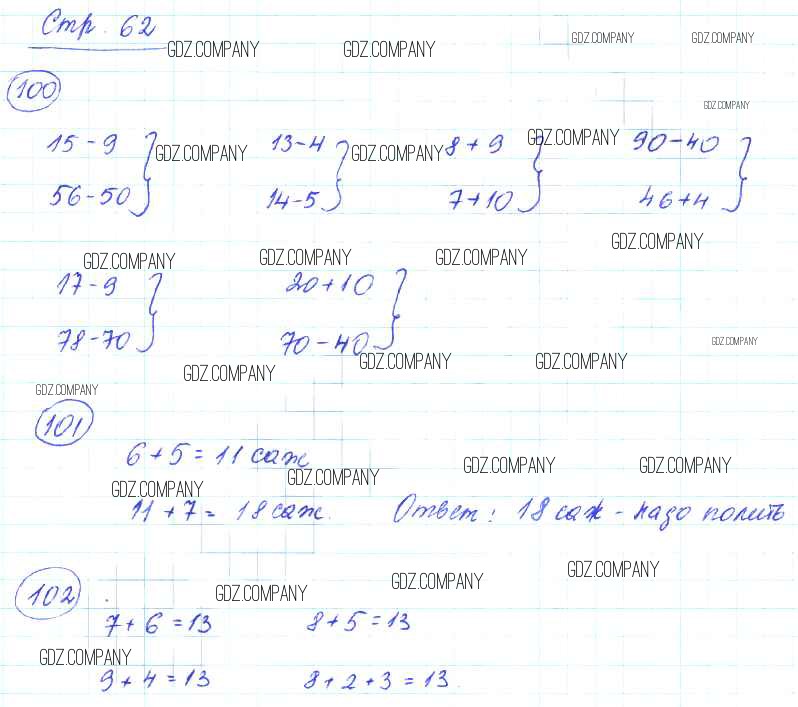 Стр. 62
GDZ.COMPANY GDZ.COMPANY GDZ.COMPANY GDZ.COMPANY
100
GDZ.COMPANY
15-9 13-4 8+9 GDZ.COMPANY 90-40
GDZ.COMPANY GDZ.COMPANY
56-50 14-5 7+10 46+4
GDZ.COMPANY GDZ.COMPANY GDZ.COMPANY GDZ.COMPANY
17-9 20+10
78-70 70-40 GDZ.COMPANY
GDZ.COMPANY GDZ.COMPANY GDZ.COMPANY
GDZ.COMPANY
101
6+5=11 саж
GDZ.COMPANY GDZ.COMPANY GDZ.COMPANY GDZ.COMPANY
11+7= 18 саж. Ответ: 18 саж - надо полить
102 GDZ.COMPANY GDZ.COMPANY GDZ.COMPANY
7+6=13 8+5=13
GDZ.COMPANY
9+4=13 8+2+3=13.